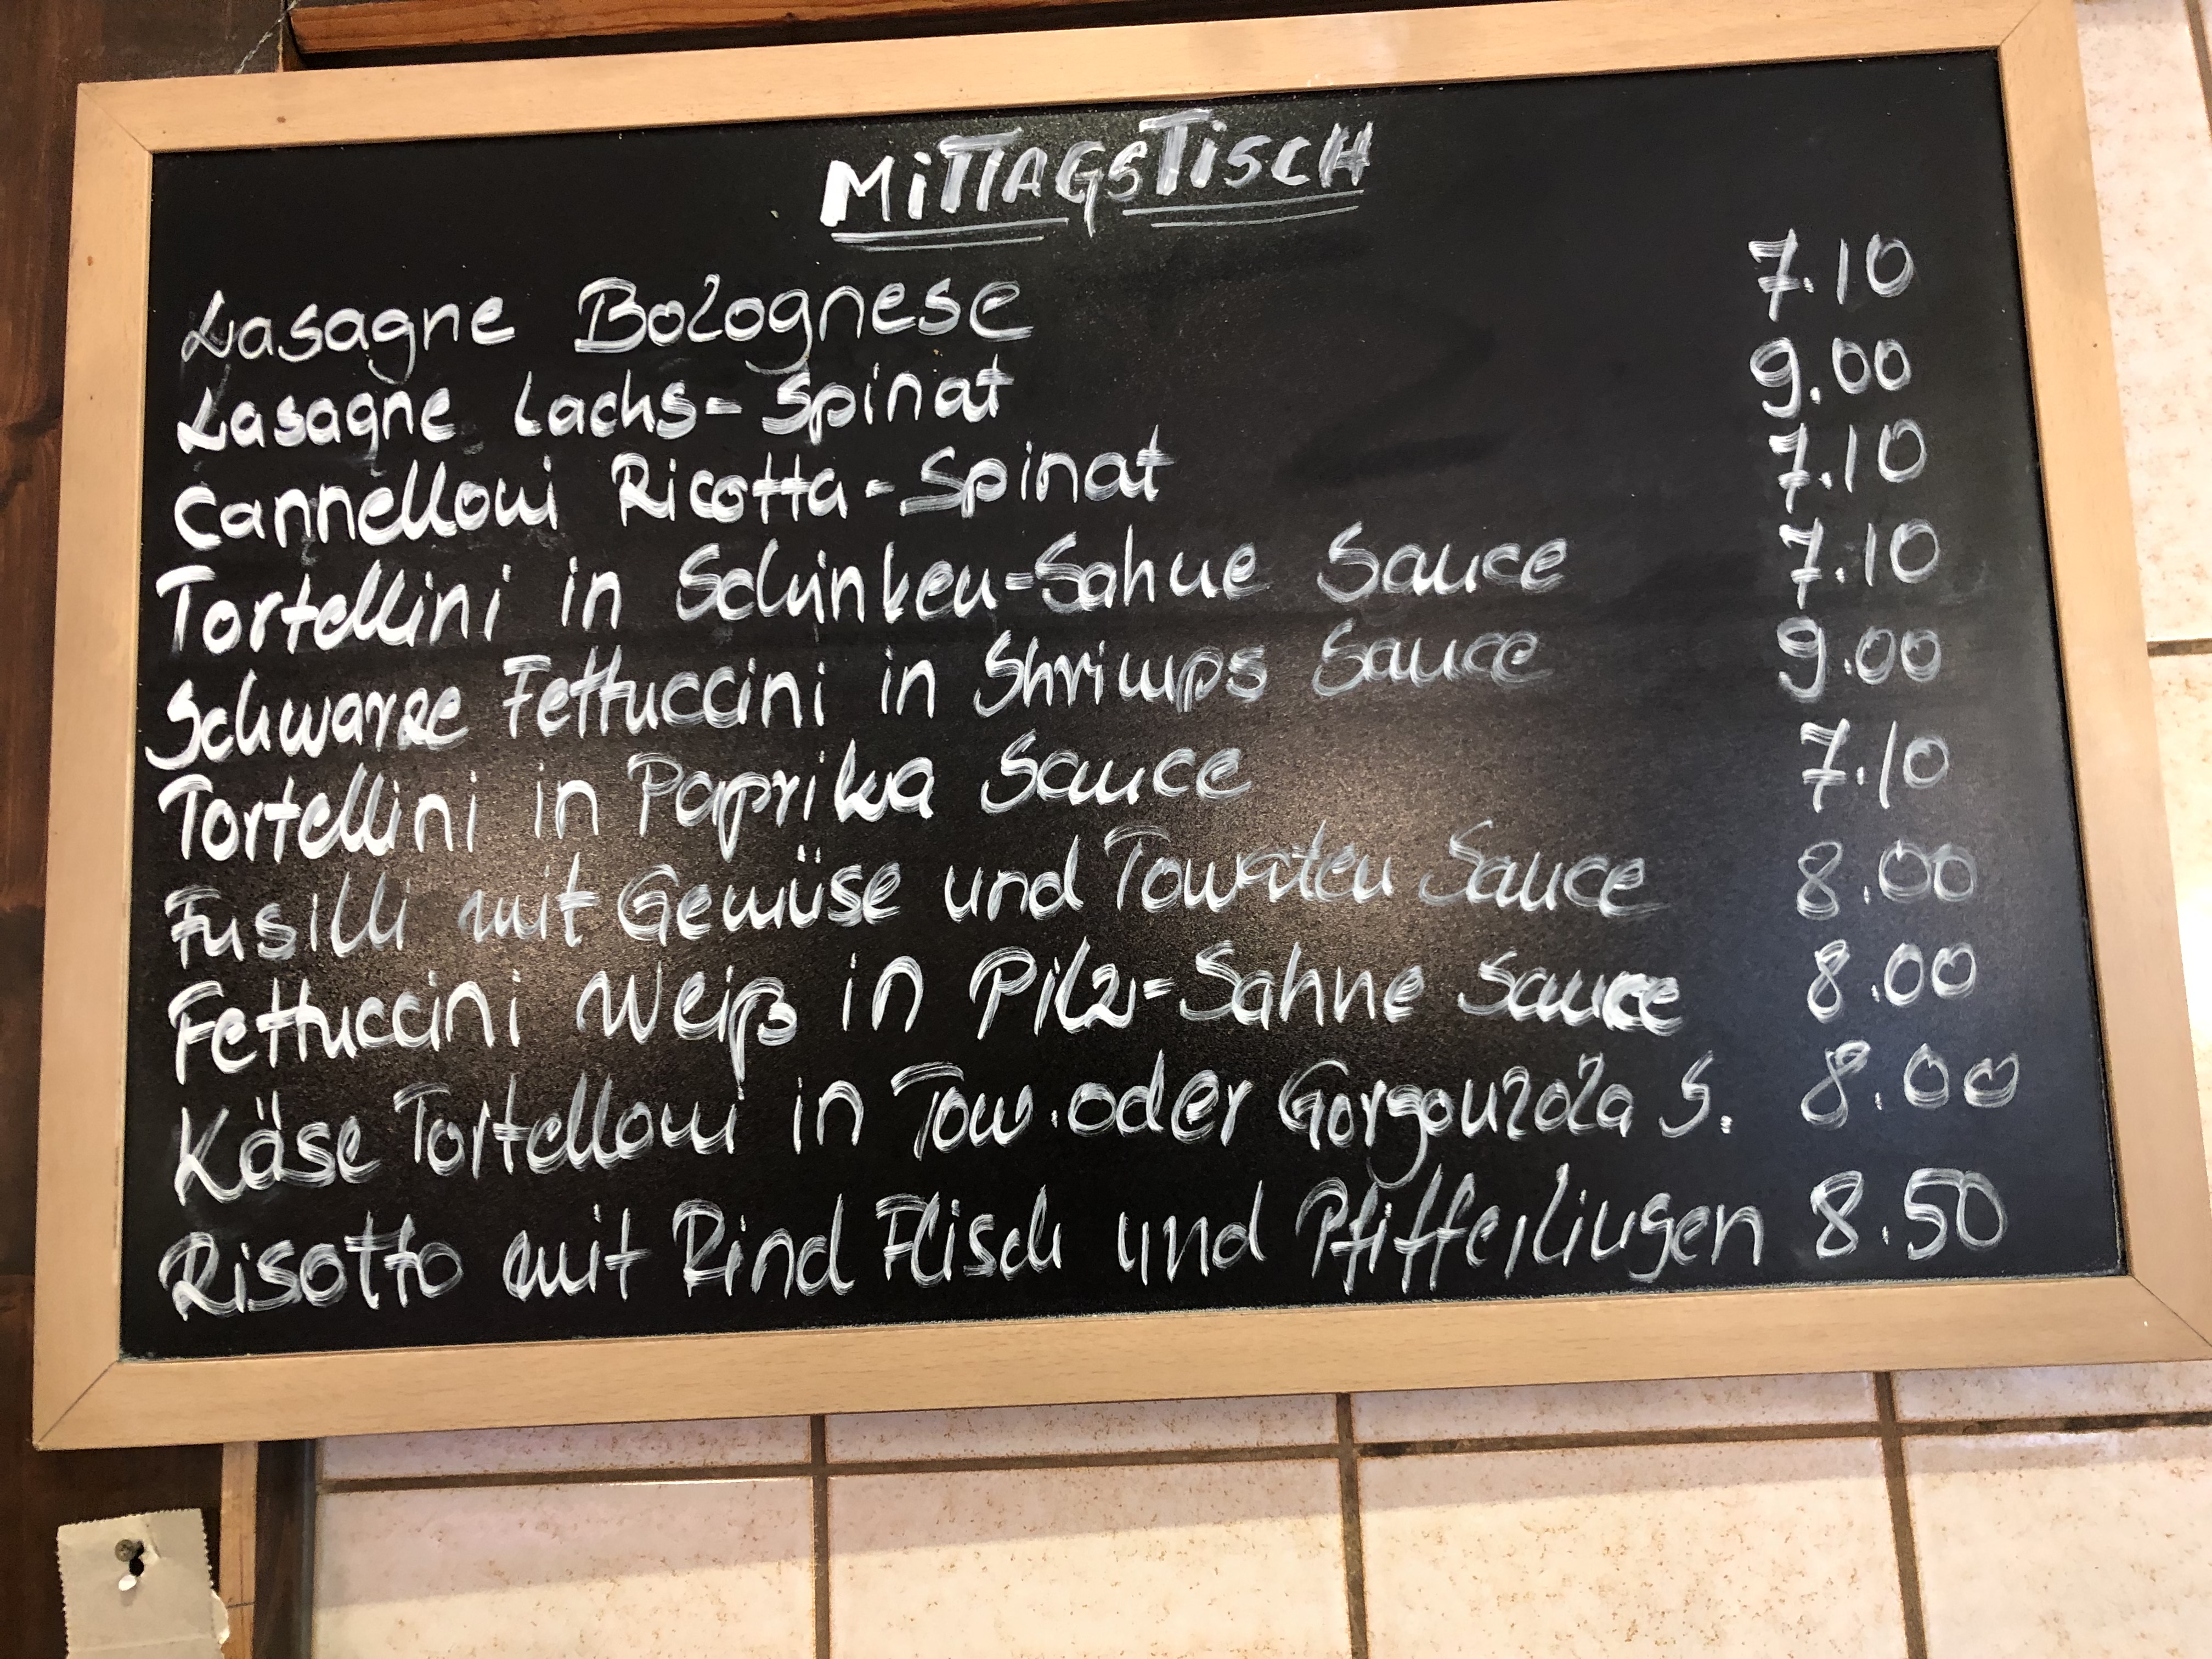 MITTAGSTISCH
Lasagne Bolognese 7.10
Lasagne Lachs-Spinat 9.00
Cannelloni Ricotta-Spinat 7.10
Tortellini in Schinken-Sahne Sauce 7.10
Schwarze Fettuccini in Shrimps Sauce 9.00
Tortellini in Paprika Sauce 7.10
Fusilli mit Gemüse und Tomaten Sauce 8.00
Fettuccini Weiß in Pilz-Sahne Sauce 8.00
Käse Tortelloni in Tom. oder Gorgonzola S. 8.00
Risotto mit Rind Flisch und Pfifferlingen 8.50